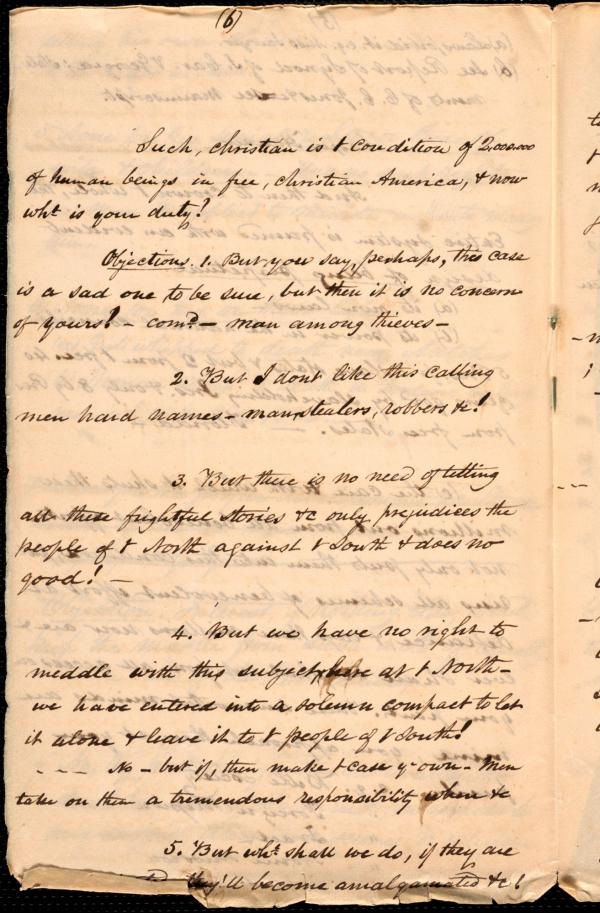 (6)
Such, christian is t condition of 2.000.000
of human beings in free, christian America, & now
wht is your duty?
Objections. 1. But you say, perhaps, this case
is a sad one to be sure, but then it is no concern
of yours! - comd - man among thieves -
2. But I dont like this calling
men hard names - man-stealers, robbers &c!
3. But there is no need of telling
all these frightful stories &c only prejudices the
people of t North against t South & does no
good! -
4. But we have no right to
meddle with this subject, here at t North -
we have entered into a solemn compact to let
it alone & leave it to t people of t South!
- - - No - but if, then make t case yr own - Men
take on them a tremendous responsibility when &c
5. But wht shall we do, if they are
they'll become amalgamated &c!